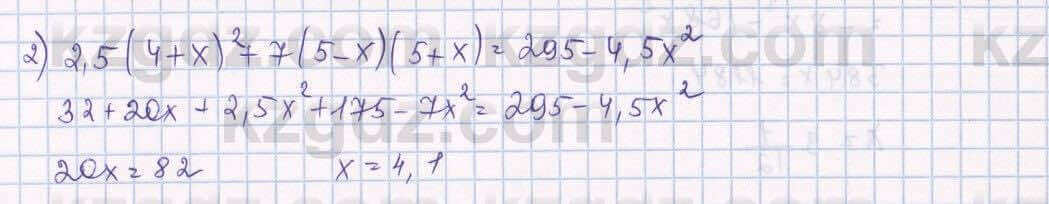 2) 2,5(4+x)²+7(5-x)(5+x)=295-4,5x²
32+20x+2,5x²+175-7x²=295-4,5x²
20x=82 x=4,1
kzgdz.com